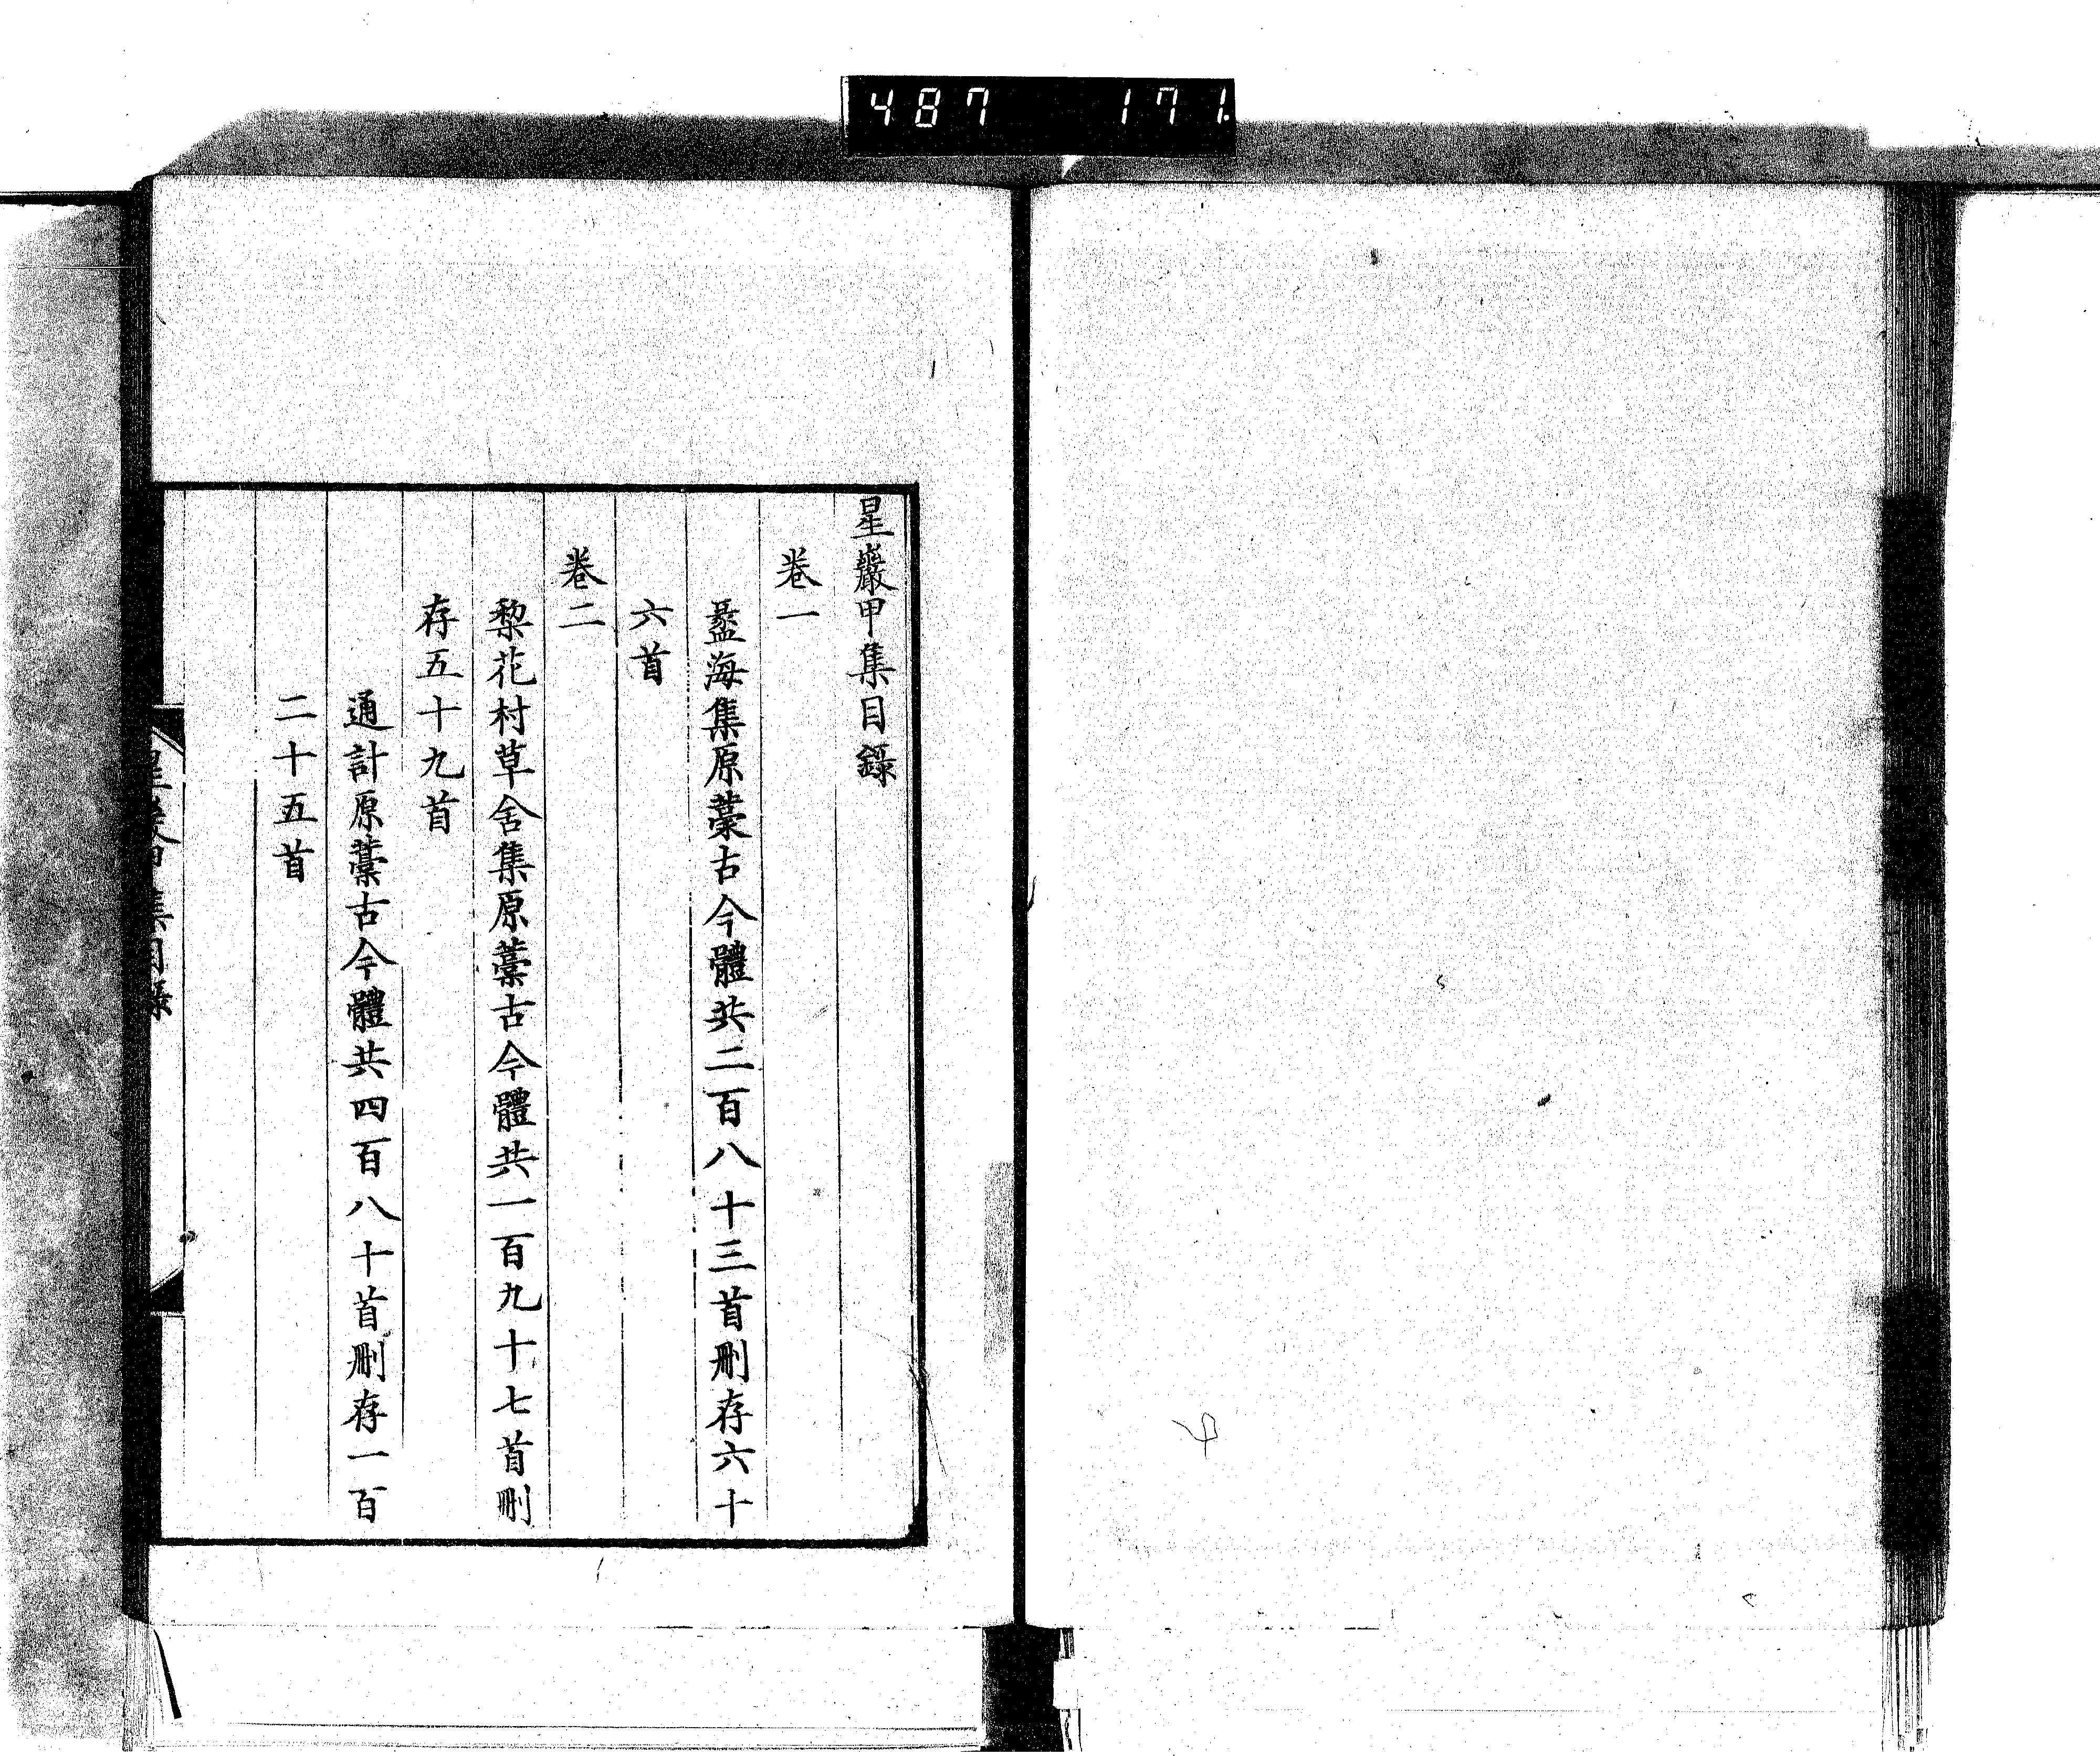 487 171
星巖甲集目錄
卷一
蠡海集原藁古今體共二百八十三首刪存六十
六首
卷二
黎花村草舍集原藁古今體共一百九十七首刪
存五十九首
通計原藁古今體共四百八十首刪存一百
二十五首
星巖甲集目錄